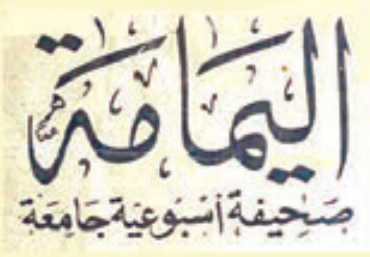 اليمامة
صَحيفة أسْبوعيَة جَامعَة